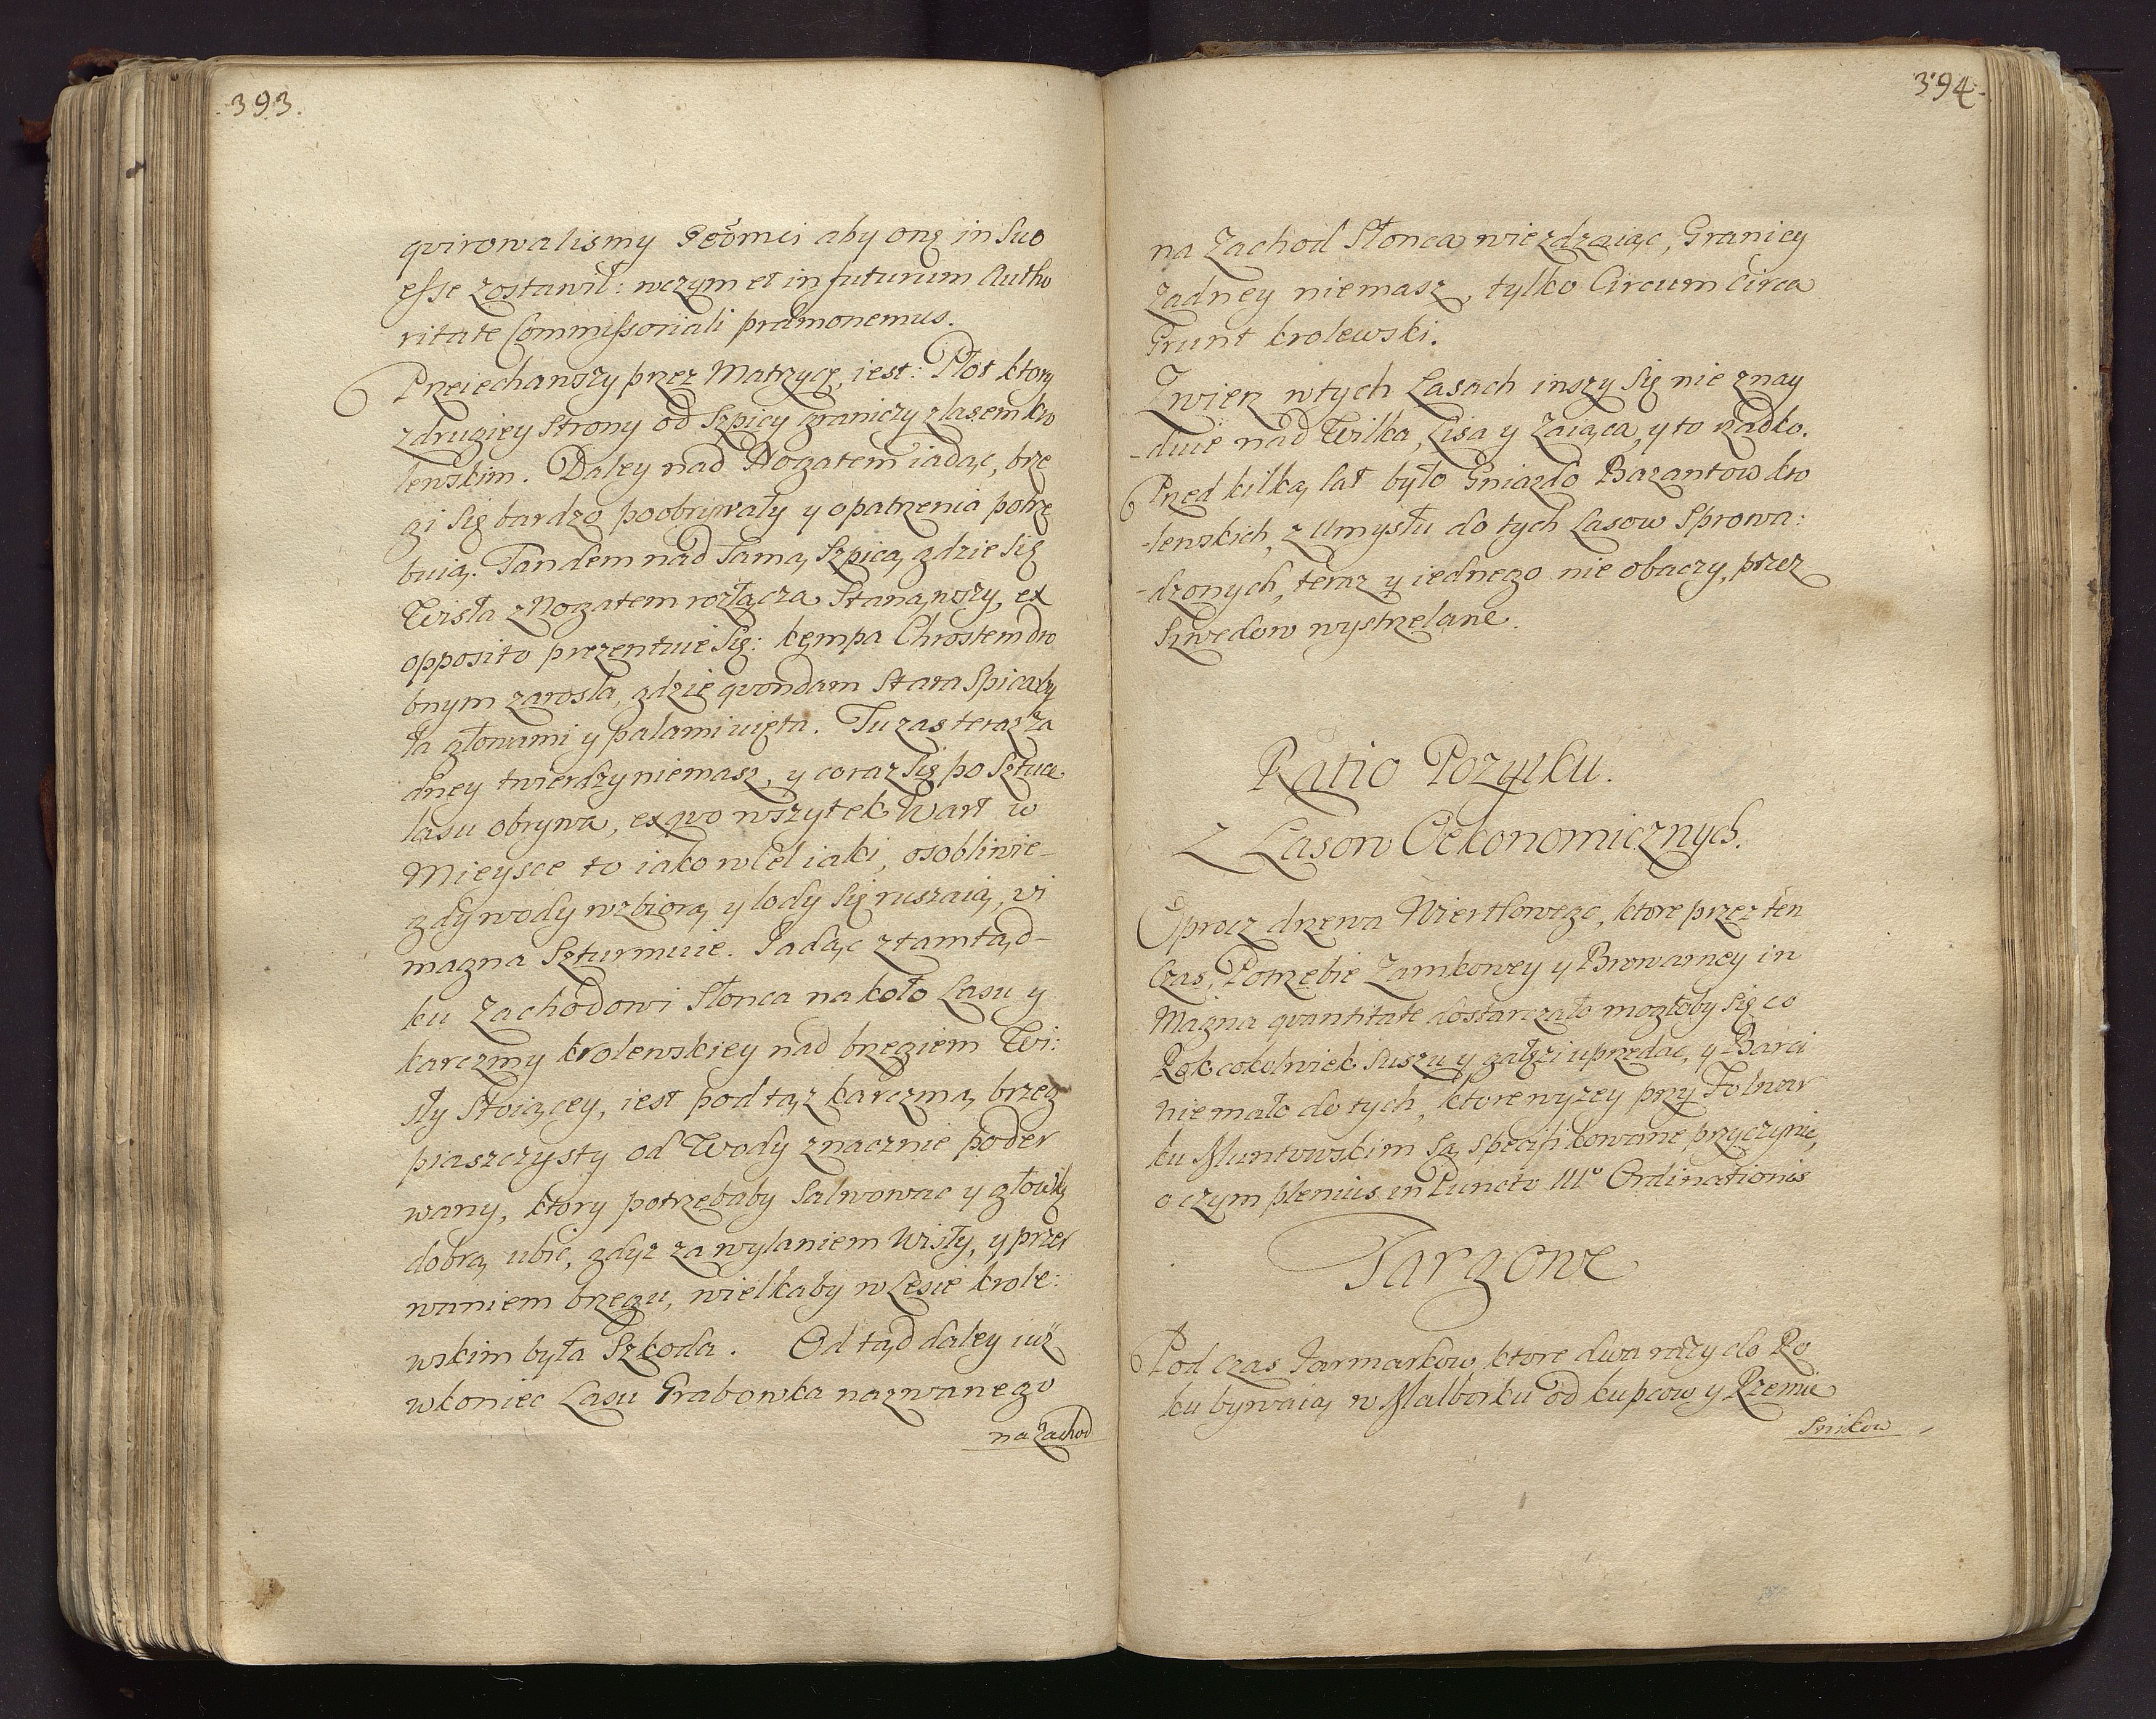 393.
qvirowalismy aby onę in Suo
esse zostawił: wczym et in futurum Autho
ritate Commissoriali præmonemus.
Przeiechawszy przez Matrzycę, iest: Płot ktory
z drugiey Strony od Szpicy graniczy z lasem kro
lewskim. Daley nad Nogatem iadąc, brze
gi Się bardzo poobrywały y opatrzenia potrze
buią. Tandem nad Samą Szpicą gdzie Się
Wisła z Nogatem rozłącza Stanąwszy, ex
opposito prezentuie Się: kępa Chrostem dro
bnym zarosła, gdzie qvondam Stara Spica by
ła głowami y palami uięta. Tu zas teraz ża
dney twierdzy niemasz, y coraz Się po Sztuce
lasu obrywa, ex qvo wszytek Wart w
Mieysce to iako w Cel iaki, osobliwie
gdy wody wzbiorą y lody Się ruszaią, vi
magna Szturmuie. Jadąc ztamtąd
ku Zachodowi Słonca na koło Lasu y
karczmy krolewskiey nad brzegiem Wi:
sły Stoiącey, iest pod tąż karczmą brzeg
piaszczysty od Wody znacznie poder
wany, ktory potrzebaby Salwowac y głowkę
dobrą ubic, gdyż za wylaniem Wisły, y przer
waniem brzegu, wielkaby w Lesie krole:
wskim była Szkoda. Od tąd daley iuż
w koniec Lasu Grabowka nazwanego
na Zachod
394.
na Zachod Słonca wiezdzaiąc, Granicy
Zadney niemasz, tylko Circum Circa
Grunt krolewski.
Zwierz w tych Lasach inszy Się nie znay
-duie nad Wilka, Lisa y Zaiąca, y to rzadko.
Przed kilką lat było Gniazdo Bazantow kro
-lewskich, z Umysłu do tych Lasow Sprowa:
-dzonych, teraz y iednego nie obaczy, przez
Szwedow wystrzelane.
Ratio Pozytku.
Z Lasow Oekonomicznych.
Oprocz drzewa Wiertlowego, ktore przez ten
Czas, Potrzebie Zamkowey y Browarney in
Magna qvantitate dostarczało mogłoby Się co
Rok cokolwiek Suszu y gałęzi uprzedac, y Barci
niemało do tych, ktore wyzey przy Folwar
ku Muntowskim Są specifikowane przyczynic,
o czym plenius in Puncto IIIº Ordinationis
Targowe
Pod czas Jarmarkow ktore dwa razy do Ro
ku bywaią w Malborku od kupcow y Rzemie
Snikow